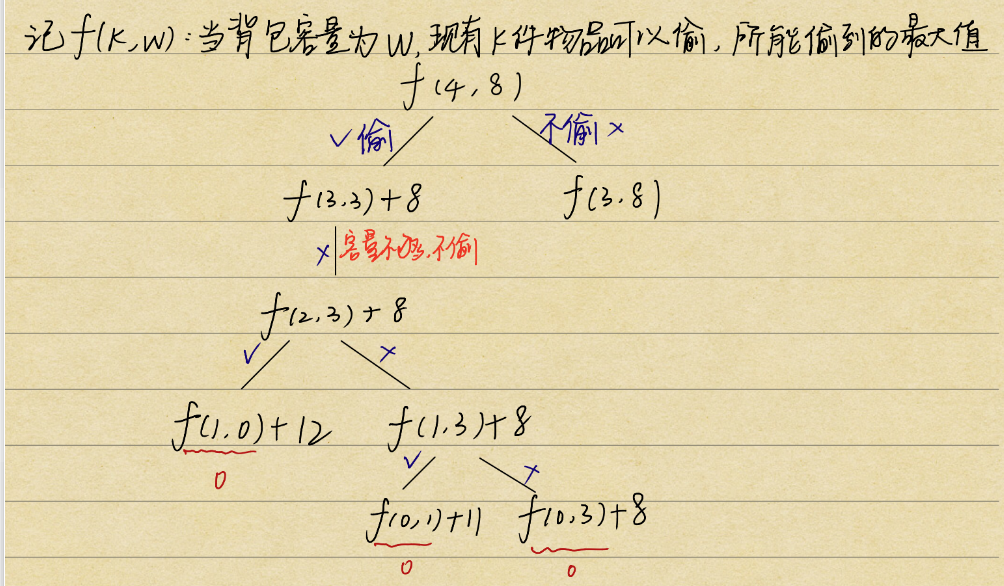 记f(K,W):当背包容量为W,现有K件物品可以偷,所能偷到的最大值
f(4,8)
✓偷 不偷×
f(3,3)+8 f(3,8)
×容量不够,不偷
f(2,3)+8
✓ ×
f(1,0)+12 f(1,3)+8
0 ✓ ×
f(0,1)+11 f(0,3)+8
0 0